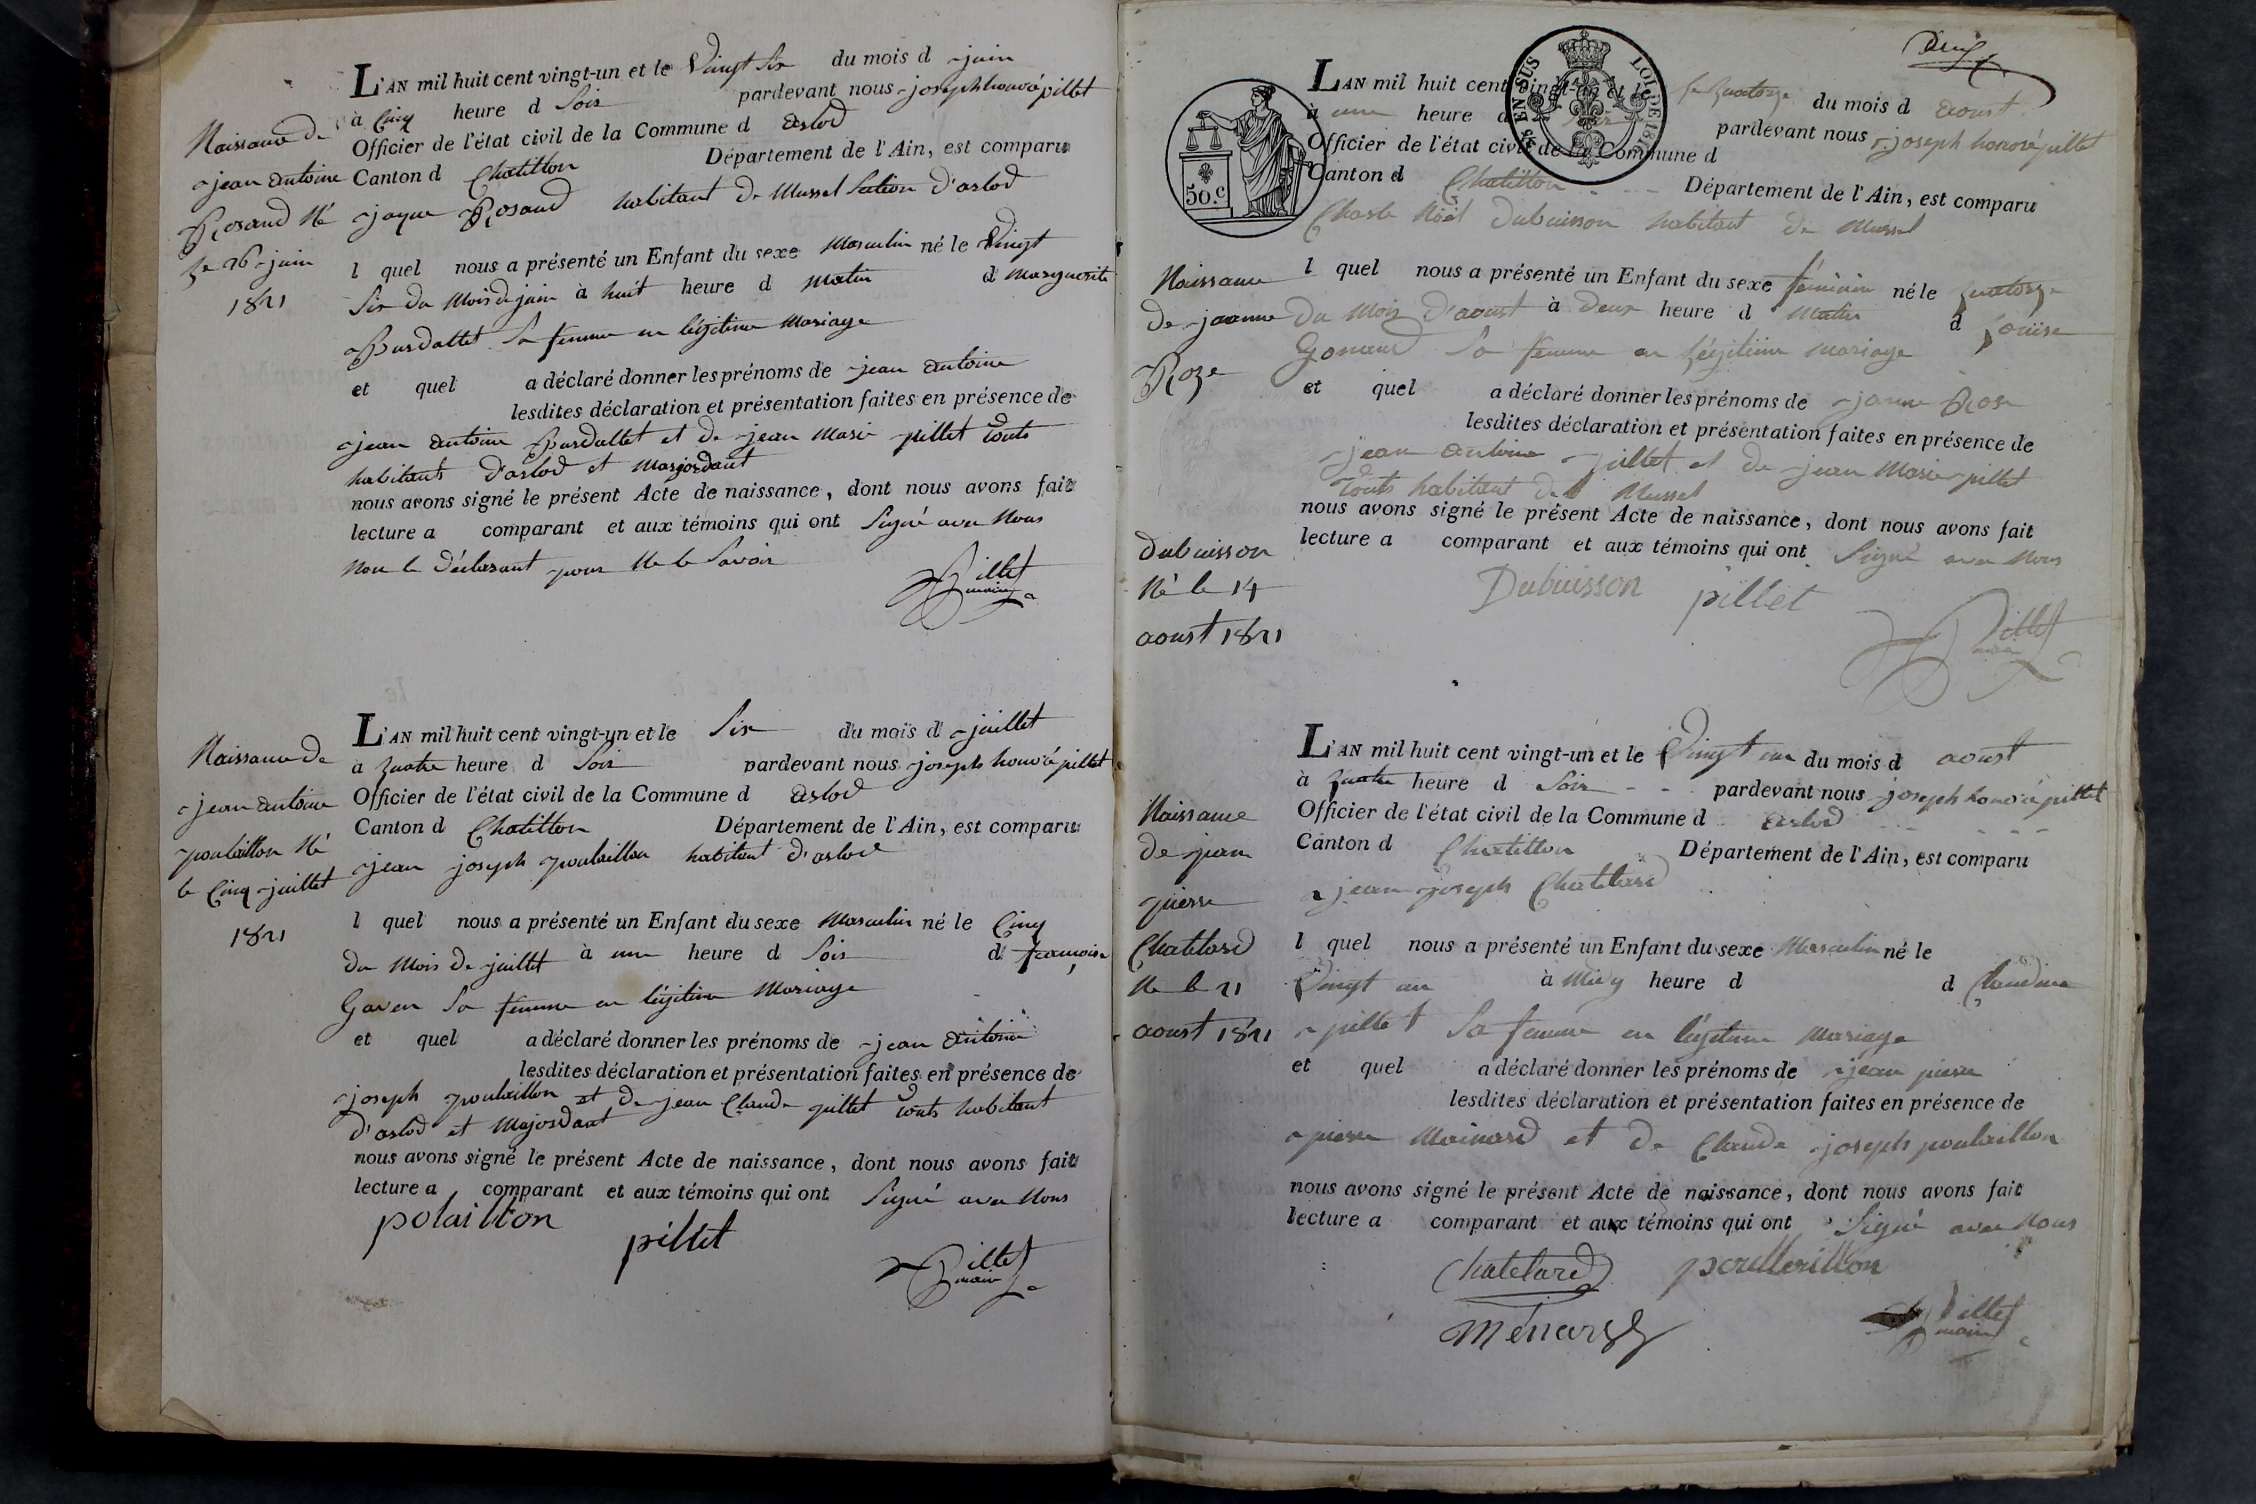 Naissance de
jean antoine
Rosand Né
le 26 juin
1821
L'AN mil huit cent vingt-un et le Vingt Six du mois d juin
à Cinq heure d Soir pardevant nous joseph honoré pillet
Officier de l'état civil de la Commune d arlod
Canton d Chatillon Département de l'Ain, est comparu
jaque Rosand habitant de Mussel Section d'arlod
l quel nous a présenté un Enfant du sexe Masculin né le Vingt
Six du Mois de juin à huit heure d Matin d Marguerite
Burdallet Sa femme en légitime Mariage
et quel a déclaré donner les prénoms de jean antoine
lesdites déclaration et présentation faites en présence de
jean antoine Burdallet et de jean Marie pillet touts
habitants d'arlod et Marjordant
nous avons signé le présent Acte de naissance, dont nous avons fait
lecture a comparant et aux témoins qui ont Signé avec Nous
Non le déclarant pour Ne le Savoir
Pillet
maire
Naissance de
jean antoine
poulaillon Né
le Cinq juillet
1821
L'AN mil huit cent vingt-un et le Six du mois d juillet
à quatre heure d Soir pardevant nous joseph honoré pillet
Officier de l'état civil de la Commune d arlod
Canton d Chatillon Département de l'Ain, est comparu
jean joseph poulaillon habitant d'arlod
l quel nous a présenté un Enfant du sexe Masculin né le Cinq
du Mois de juillet à une heure d Soir d françoise
Gaven Sa femme en légitime Mariage
et quel a déclaré donner les prénoms de jean antoine
lesdites déclaration et présentation faites en présence de
joseph poulaillon et de jean Claude pillet touts habitant
d'arlod et Majordant
nous avons signé le présent Acte de naissance, dont nous avons fait
lecture a comparant et aux témoins qui ont Signé avec Nous
polaillon
pillet
Pillet
maire
50.C
EN SUS LOI DE 1816
Naissance
de jeanne
Roze
Dubuisson
Né le 14
aoust 1821
L'AN mil huit cent vingt-un et le le quatorze du mois d aoust
à une heure d Soir pardevant nous joseph honoré pillet
Officier de l'état civil de la Commune d
Canton d Chatillon Département de l'Ain, est comparu
Charle Nöel Dubuisson habitant de Mussel
l quel nous a présenté un Enfant du sexe féminin né le quatorze
du Mois d'aoust à deux heure d Matin d Louise
Gonand Sa femme en Légitime Mariage
et quel a déclaré donner les prénoms de jeanne Rose
lesdites déclaration et présentation faites en présence de
jean antoine pillet et de jean Marie pillet
touts habitant de Mussel
nous avons signé le présent Acte de naissance, dont nous avons fait
lecture a comparant et aux témoins qui ont Signé avec Nous
Dubuisson pillet
Pillet
maire
Naissance
de jean
pierre
Chatelard
Ne le 21
aoust 1821
L'AN mil huit cent vingt-un et le Vingt un du mois d aoust
à quatre heure d Soir pardevant nous joseph honoré pillet
Officier de l'état civil de la Commune d arlod
Canton d Chatillon Département de l'Ain, est comparu
jean joseph Chatelard
l quel nous a présenté un Enfant du sexe Masculin né le
Vingt un à Midy heure d d Claudine
pillet Sa femme en légitime Mariage
et quel a déclaré donner les prénoms de jean pierre
lesdites déclaration et présentation faites en présence de
pierre Mainard et de Claude joseph poulaillon
nous avons signé le présent Acte de naissance, dont nous avons fait
lecture a comparant et aux témoins qui ont Signé avec Nous
Chatelard poullaillon
Menard
Pillet
maire